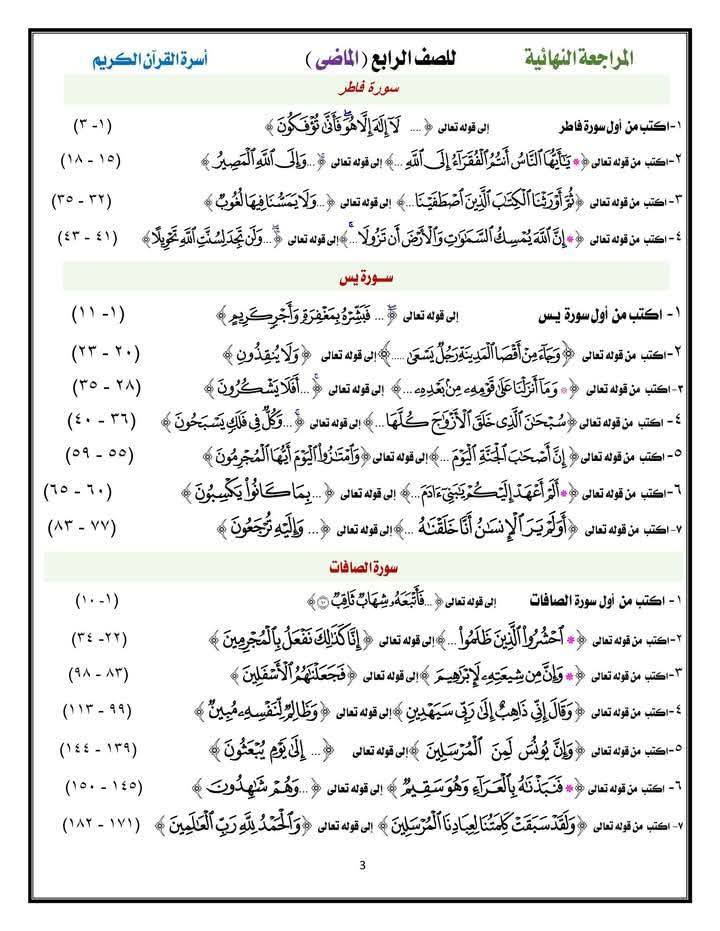 المراجعة النهائية للصف الرابع (الماضى) أسرة القرآن الكريم
سورة فاطر
١- اكتب من أول سورة فاطر إلى قوله تعالى ﴿ .... لَآ إِلَٰهَ إِلَّا هُوَۖ فَأَنَّىٰ تُؤۡفَكُونَ ﴾ (١- ٣)
٢- اكتب من قوله تعالى ﴿ * يَٰٓأَيُّهَا ٱلنَّاسُ أَنتُمُ ٱلۡفُقَرَآءُ إِلَى ٱللَّهِ ...﴾ إلى قوله تعالى ﴿ ...وَإِلَى ٱللَّهِ ٱلۡمَصِيرُ ﴾ (١٥ - ١٨)
٣- اكتب من قوله تعالى ﴿ثُمَّ أَوۡرَثۡنَا ٱلۡكِتَٰبَ ٱلَّذِينَ ٱصۡطَفَيۡنَا...﴾ إلى قوله تعالى ﴿ ...وَلَا يَمَسُّنَا فِيهَا لُغُوبٞ﴾ (٣٢ - ٣٥)
٤- اكتب من قوله تعالى ﴿ * إِنَّ ٱللَّهَ يُمۡسِكُ ٱلسَّمَٰوَٰتِ وَٱلۡأَرۡضَ أَن تَزُولَاۚ ...﴾ إلى قوله تعالى ﴿ ...وَلَن تَجِدَ لِسُنَّتِ ٱللَّهِ تَحۡوِيلًا﴾ (٤١ - ٤٣)
سورة يس
١- اكتب من أول سورة يس إلى قوله تعالى ﴿ ... فَبَشِّرۡهُ بِمَغۡفِرَةٖ وَأَجۡرٖ كَرِيمٍ ﴾ (١- ١١)
٢- اكتب من قوله تعالى ﴿وَجَآءَ مِنۡ أَقۡصَا ٱلۡمَدِينَةِ رَجُلٞ يَسۡعَىٰ .....﴾ إلى قوله تعالى ﴿ وَلَا يُنقِذُونِ ﴾ (٢٠ - ٢٣)
٣- اكتب من قوله تعالى ﴿ * وَمَآ أَنزَلۡنَا عَلَىٰ قَوۡمِهِۦ مِنۢ بَعۡدِهِۦ ...﴾ إلى قوله تعالى ﴿ ...أَفَلَا يَشۡكُرُونَ ﴾ (٢٨ - ٣٥)
٤- اكتب من قوله تعالى ﴿سُبۡحَٰنَ ٱلَّذِي خَلَقَ ٱلۡأَزۡوَٰجَ كُلَّهَا...﴾ إلى قوله تعالى ﴿ ...وَكُلّٞ فِي فَلَكٖ يَسۡبَحُونَ ﴾ (٣٦ - ٤٠)
٥- اكتب من قوله تعالى ﴿ إِنَّ أَصۡحَٰبَ ٱلۡجَنَّةِ ٱلۡيَوۡمَ ...﴾ إلى قوله تعالى ﴿وَٱمۡتَٰزُواْ ٱلۡيَوۡمَ أَيُّهَا ٱلۡمُجۡرِمُونَ ﴾ (٥٥ - ٥٩)
٦- اكتب من قوله تعالى ﴿ * أَلَمۡ أَعۡهَدۡ إِلَيۡكُمۡ يَٰبَنِيٓ ءَادَمَ ...﴾ إلى قوله تعالى ﴿ ...بِمَا كَانُواْ يَكۡسِبُونَ ﴾ (٦٠ - ٦٥)
٧- اكتب من قوله تعالى ﴿أَوَلَمۡ يَرَ ٱلۡإِنسَٰنُ أَنَّا خَلَقۡنَٰهُ ...﴾ إلى قوله تعالى ﴿ ... وَإِلَيۡهِ تُرۡجَعُونَ ﴾ (٧٧ - ٨٣)
سورة الصافات
١- اكتب من أول سورة الصافات إلى قوله تعالى ﴿ ...فَأَتۡبَعَهُۥ شِهَابٞ ثَاقِبٞ ١٠﴾ (١- ١٠)
٢- اكتب من قوله تعالى ﴿ * ٱحۡشُرُواْ ٱلَّذِينَ ظَلَمُواْ ...﴾ إلى قوله تعالى ﴿ إِنَّا كَذَٰلِكَ نَفۡعَلُ بِٱلۡمُجۡرِمِينَ ﴾ (٢٢- ٣٤)
٣- اكتب من قوله تعالى ﴿ * وَإِنَّ مِن شِيعَتِهِۦ لَإِبۡرَٰهِيمَ ﴾ إلى قوله تعالى ﴿ فَجَعَلۡنَٰهُمُ ٱلۡأَسۡفَلِينَ ﴾ (٨٣ - ٩٨)
٤- اكتب من قوله تعالى ﴿ وَقَالَ إِنِّي ذَاهِبٌ إِلَىٰ رَبِّي سَيَهۡدِينِ ﴾ إلى قوله تعالى ﴿ وَظَالِمٞ لِّنَفۡسِهِۦ مُبِينٞ ﴾ (٩٩ - ١١٣)
٥- اكتب من قوله تعالى ﴿ وَإِنَّ يُونُسَ لَمِنَ ٱلۡمُرۡسَلِينَ ﴾ إلى قوله تعالى ﴿ ... إِلَىٰ يَوۡمِ يُبۡعَثُونَ ﴾ (١٣٩ - ١٤٤)
٦- اكتب من قوله تعالى ﴿ * فَنَبَذۡنَٰهُ بِٱلۡعَرَآءِ وَهُوَ سَقِيمٞ ﴾ إلى قوله تعالى ﴿ ...وَهُمۡ شَٰهِدُونَ ﴾ (١٤٥ - ١٥٠)
٧- اكتب من قوله تعالى ﴿ وَلَقَدۡ سَبَقَتۡ كَلِمَتُنَا لِعِبَادِنَا ٱلۡمُرۡسَلِينَ ﴾ إلى قوله تعالى ﴿ وَٱلۡحَمۡدُ لِلَّهِ رَبِّ ٱلۡعَٰلَمِينَ ﴾ (١٧١ - ١٨٢)
3